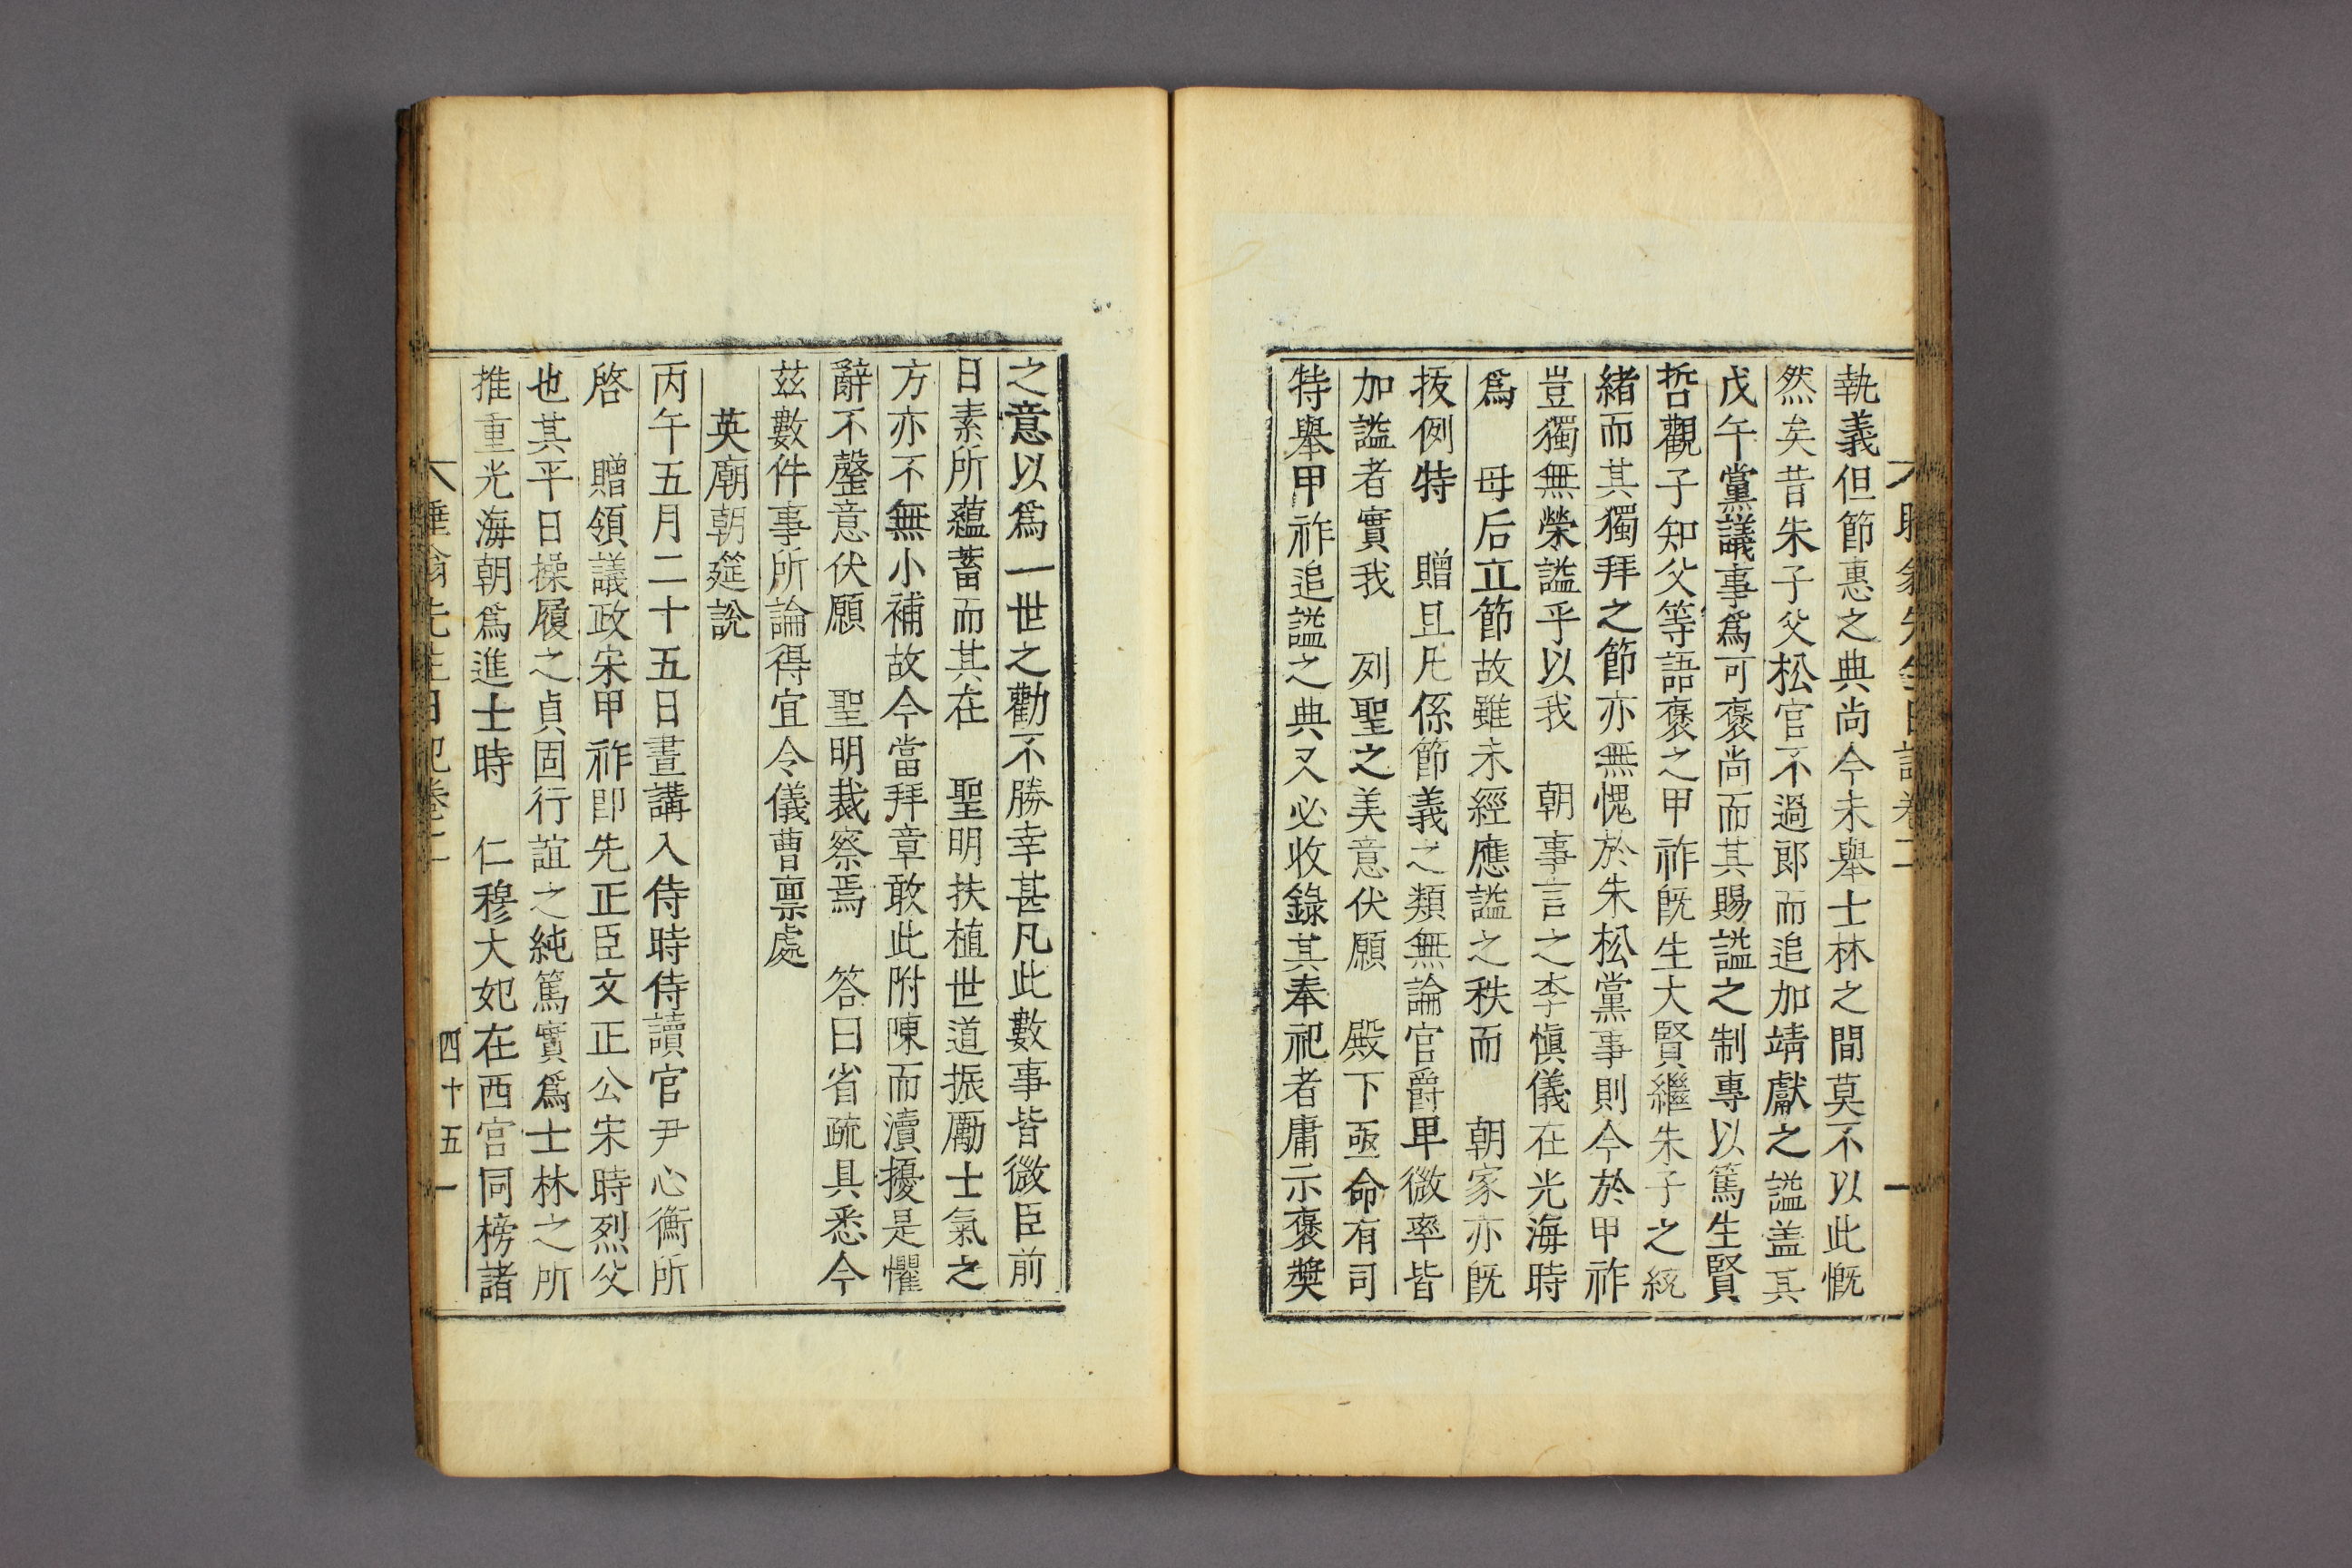 執義但節惠之典尚今未舉士林之間莫不以此慨
然矣昔朱子父松官不過郎而追加靖獻之謚盖其
戊午黨議事爲可褒尚而其賜謚之制專以篤生賢
哲觀子知父等語褒之甲祚旣生大賢繼朱子之統
緖而其獨拜之節亦無愧於朱松黨事則今於甲祚
豈獨無榮謚乎以我 朝事言之李愼儀在光海時
爲 母后立節故雖未經應謚之秩而 朝家亦旣
拔例特 贈且凡係節義之類無論官爵卑微率皆
加謚者實我 列聖之美意伏願 殿下亟命有司
特舉甲祚追謚之典又必收錄其奉祀者庸示褒奬
之意以爲一世之勸不勝幸甚凡此數事皆微臣前
日素所蘊蓄而其在 聖明扶植世道振勵士氣之
方亦不無小補故今當拜章敢此附陳而瀆擾是懼
辭不罄意伏願 聖明裁察焉 答曰省疏具悉今
茲數件事所論得宜令儀曹稟處
英廟朝筵說
丙午五月二十五日晝講入侍時侍讀官尹心衡所
啓 贈領議政宋甲祚卽先正臣文正公宋時烈父
也其平日操履之貞固行誼之純篤實爲士林之所
推重光海朝爲進士時 仁穆大妃在西宮同榜諸
睡翁先生日記卷二 四十五